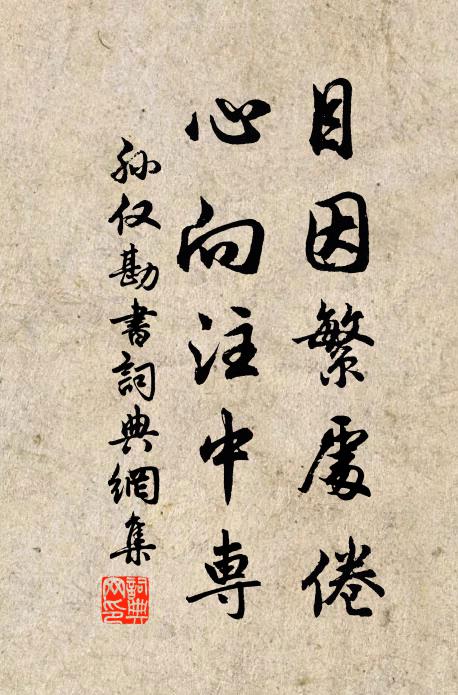 目因繁處倦
心向注中専
孙仅勘書詞典網集
詞典网印